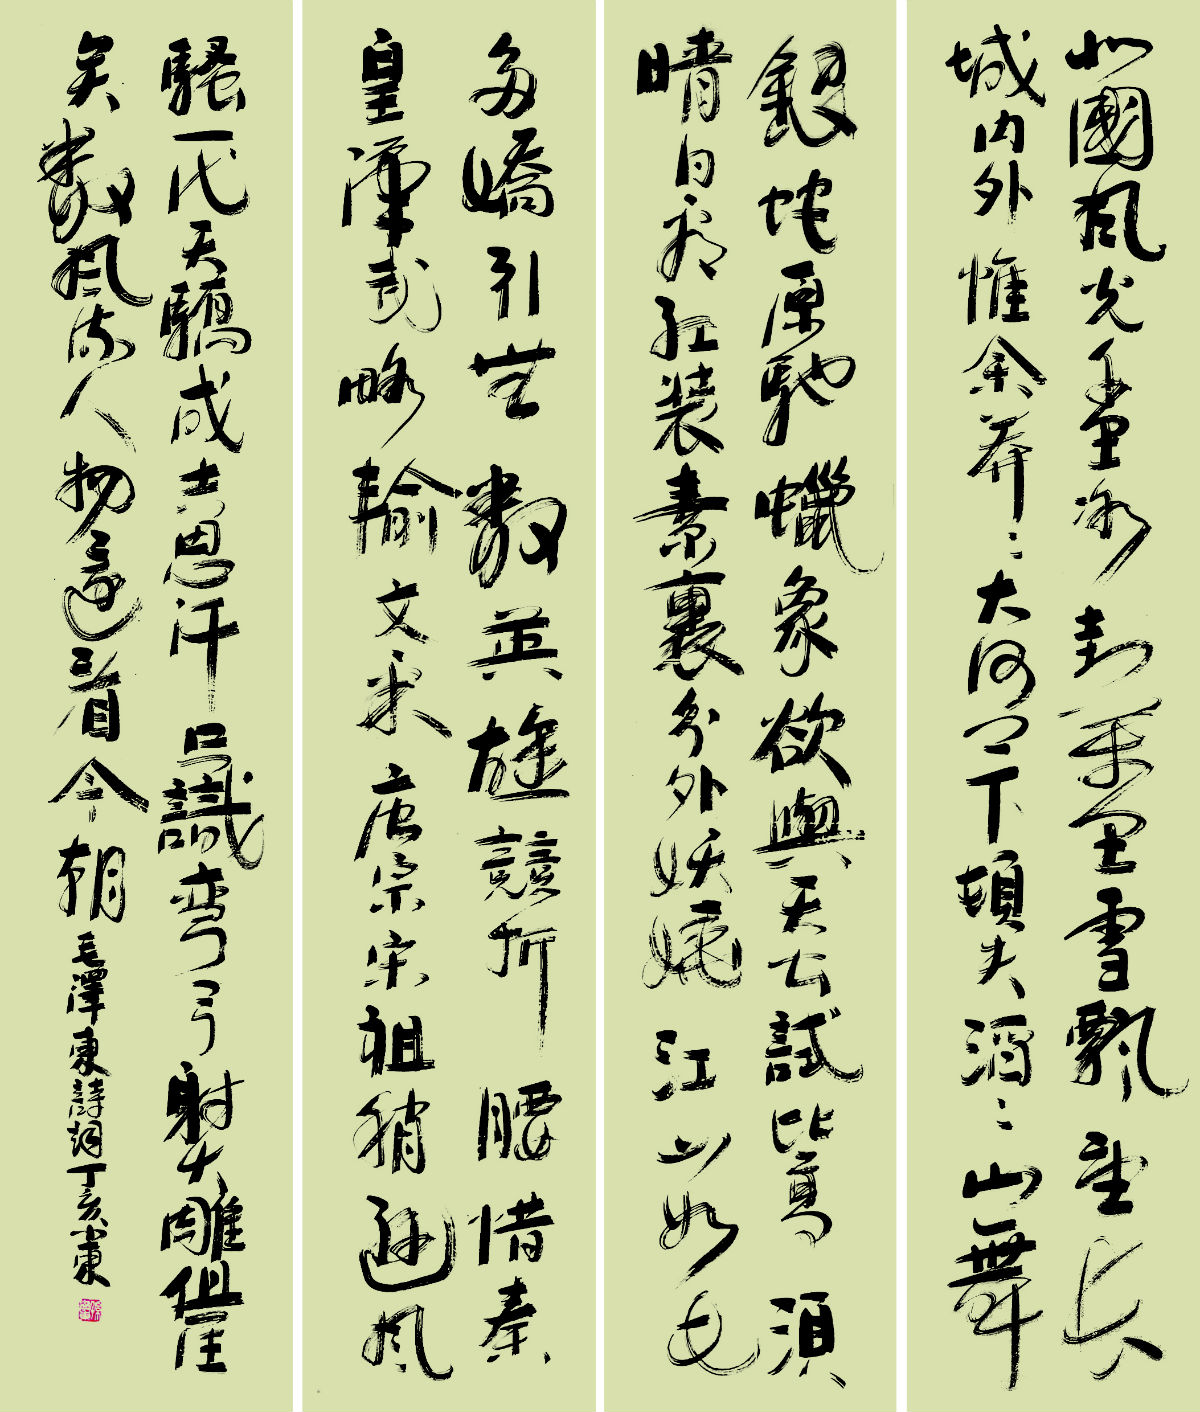 北國風光千里冰封萬里雪飄望長
城内外惟余莽〻大河上下頓失滔〻山舞
銀蛇原馳蠟象欲與天公試比高須
晴日看紅装素裹分外妖嬈江山如此
多嬌引無數英雄競折腰惜秦
皇漢武略輸文采唐宗宋祖稍遜風
騷一代天驕成吉思汗只識弯弓射大雕俱往
矣數風流人物還看今朝毛澤東詩詞丁亥東